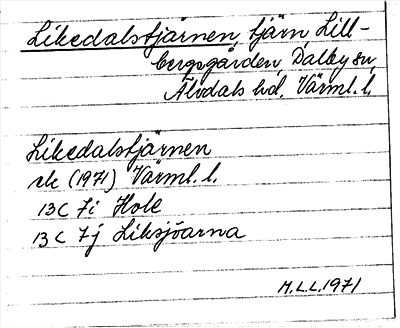 Likedalstjärnen, tjärn, Lill-
bergsgården, Dalby sn,
Älvdals hd, Värml. l.
Likedalstjärnen
ek (1971) Värml. l.
13C 7i Hole
13C 7j Liksjöarna
M.L.L. 1971